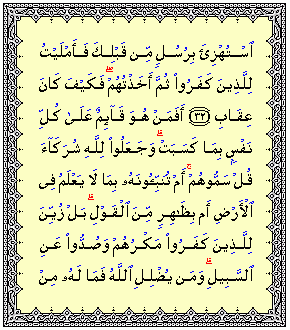 ٱسْتُهْزِئَ بِرُسُلٍ مِّن قَبْلِكَ فَأَمْلَيْتُ
لِلَّذِينَ كَفَرُوا۟ ثُمَّ أَخَذْتُهُمْ ۖ فَكَيْفَ كَانَ
عِقَابِ ﴿٣٢﴾ أَفَمَنْ هُوَ قَآئِمٌ عَلَىٰ كُلِّ
نَفْسٍۭ بِمَا كَسَبَتْ ۗ وَجَعَلُوا۟ لِلَّهِ شُرَكَآءَ
قُلْ سَمُّوهُمْ ۚ أَمْ تُنَبِّـُٔونَهُۥ بِمَا لَا يَعْلَمُ فِى
ٱلْأَرْضِ أَم بِظَـٰهِرٍ مِّنَ ٱلْقَوْلِ ۗ بَلْ زُيِّنَ
لِلَّذِينَ كَفَرُوا۟ مَكْرُهُمْ وَصُدُّوا۟ عَنِ
ٱلسَّبِيلِ ۗ وَمَن يُضْلِلِ ٱللَّهُ فَمَا لَهُۥ مِنْ